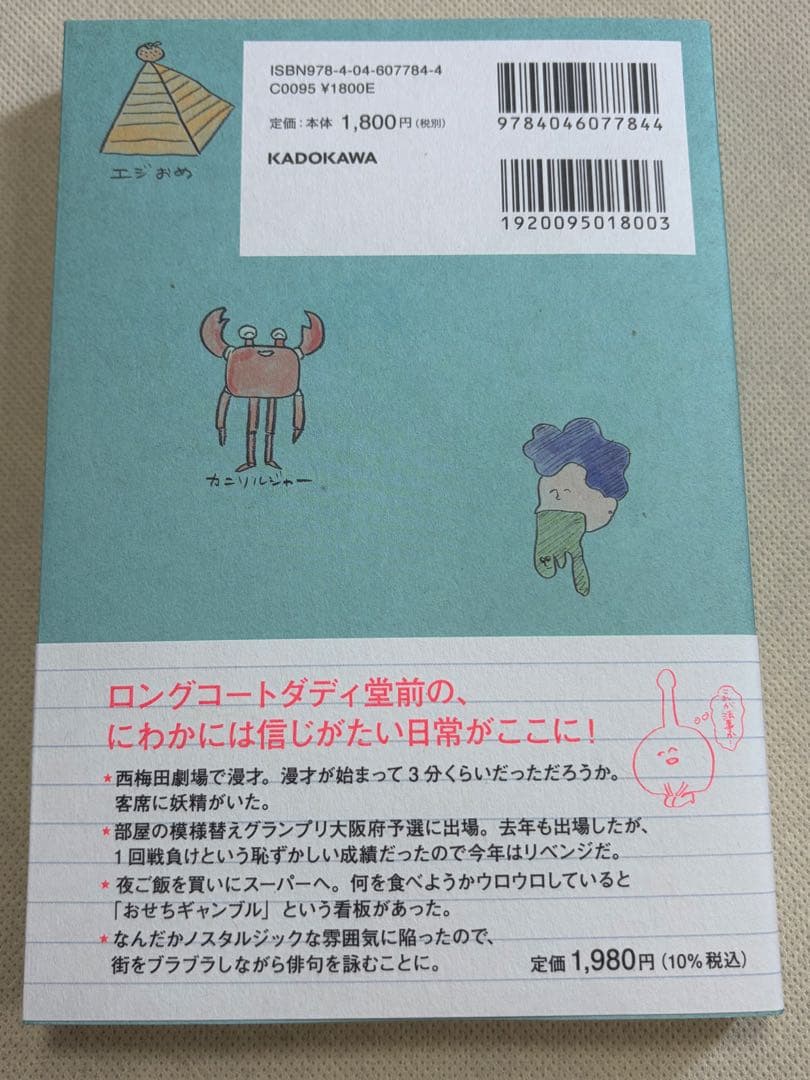 ISBN978-4-04-607784-4
C0095 ¥1800E
定価：本体 1,800円（税別）
KADOKAWA
9784046077844
1920095018003
エジおめ
カニソルジャー
ロングコートダディ堂前の、
にわかには信じがたい日常がここに！
これが法事か！
★西梅田劇場で漫才。漫才が始まって3分くらいだっただろうか。
客席に妖精がいた。
★部屋の模様替えグランプリ大阪府予選に出場。去年も出場したが、
1回戦負けという恥ずかしい成績だったので今年はリベンジだ。
★夜ご飯を買いにスーパーへ。何を食べようかウロウロしていると
「おせちギャンブル」という看板があった。
★なんだかノスタルジックな雰囲気に陥ったので、
街をブラブラしながら俳句を詠むことに。
定価1,980円（10%税込）